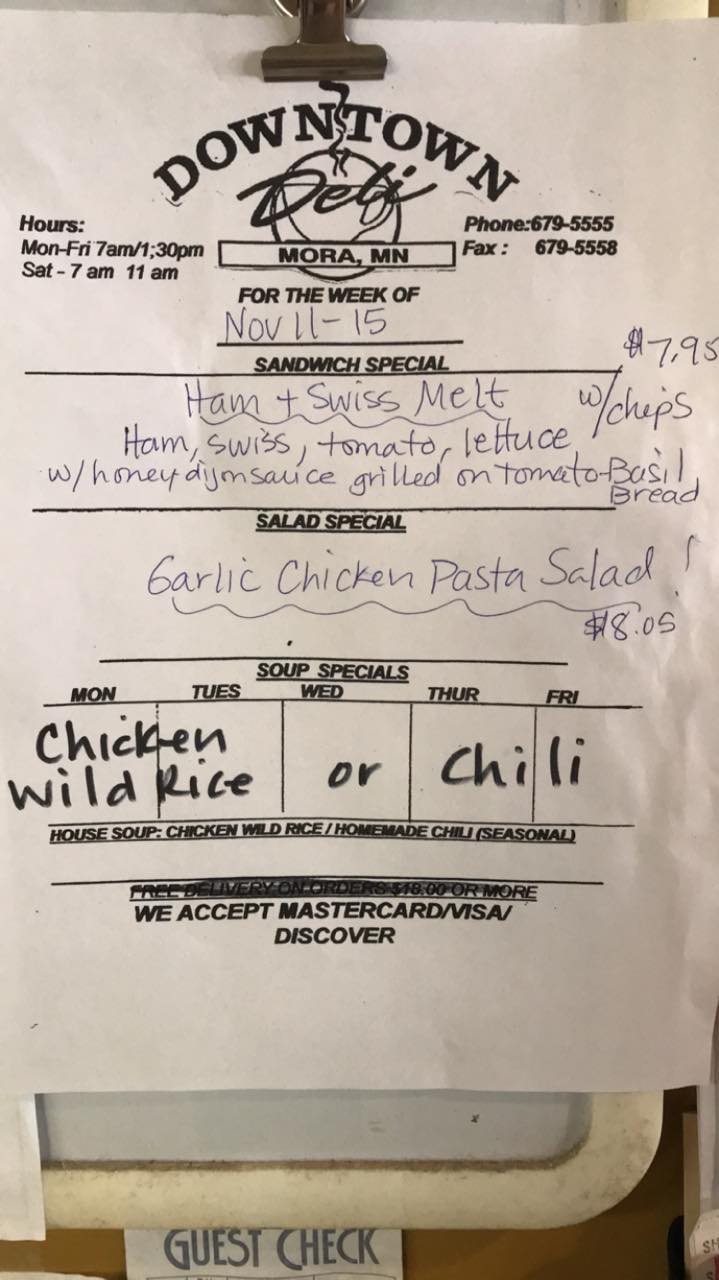 DOWNTOWN
Deli
MORA, MN
Hours:
Mon-Fri 7am/1;30pm
Sat - 7 am 11 am
Phone:679-5555
Fax : 679-5558
FOR THE WEEK OF
Nov 11-15
SANDWICH SPECIAL
$7.95
Ham + Swiss Melt w/chips
Ham, swiss, tomato, lettuce
w/ honey dijon sauce grilled on tomato-Basil
Bread
SALAD SPECIAL
Garlic Chicken Pasta Salad!
$8.05
SOUP SPECIALS
MON TUES WED THUR FRI
Chicken
Wild Rice or Chili
HOUSE SOUP: CHICKEN WILD RICE / HOMEMADE CHILI (SEASONAL)
FREE DELIVERY ON ORDERS $18.00 OR MORE
WE ACCEPT MASTERCARD/VISA/
DISCOVER
GUEST CHECK